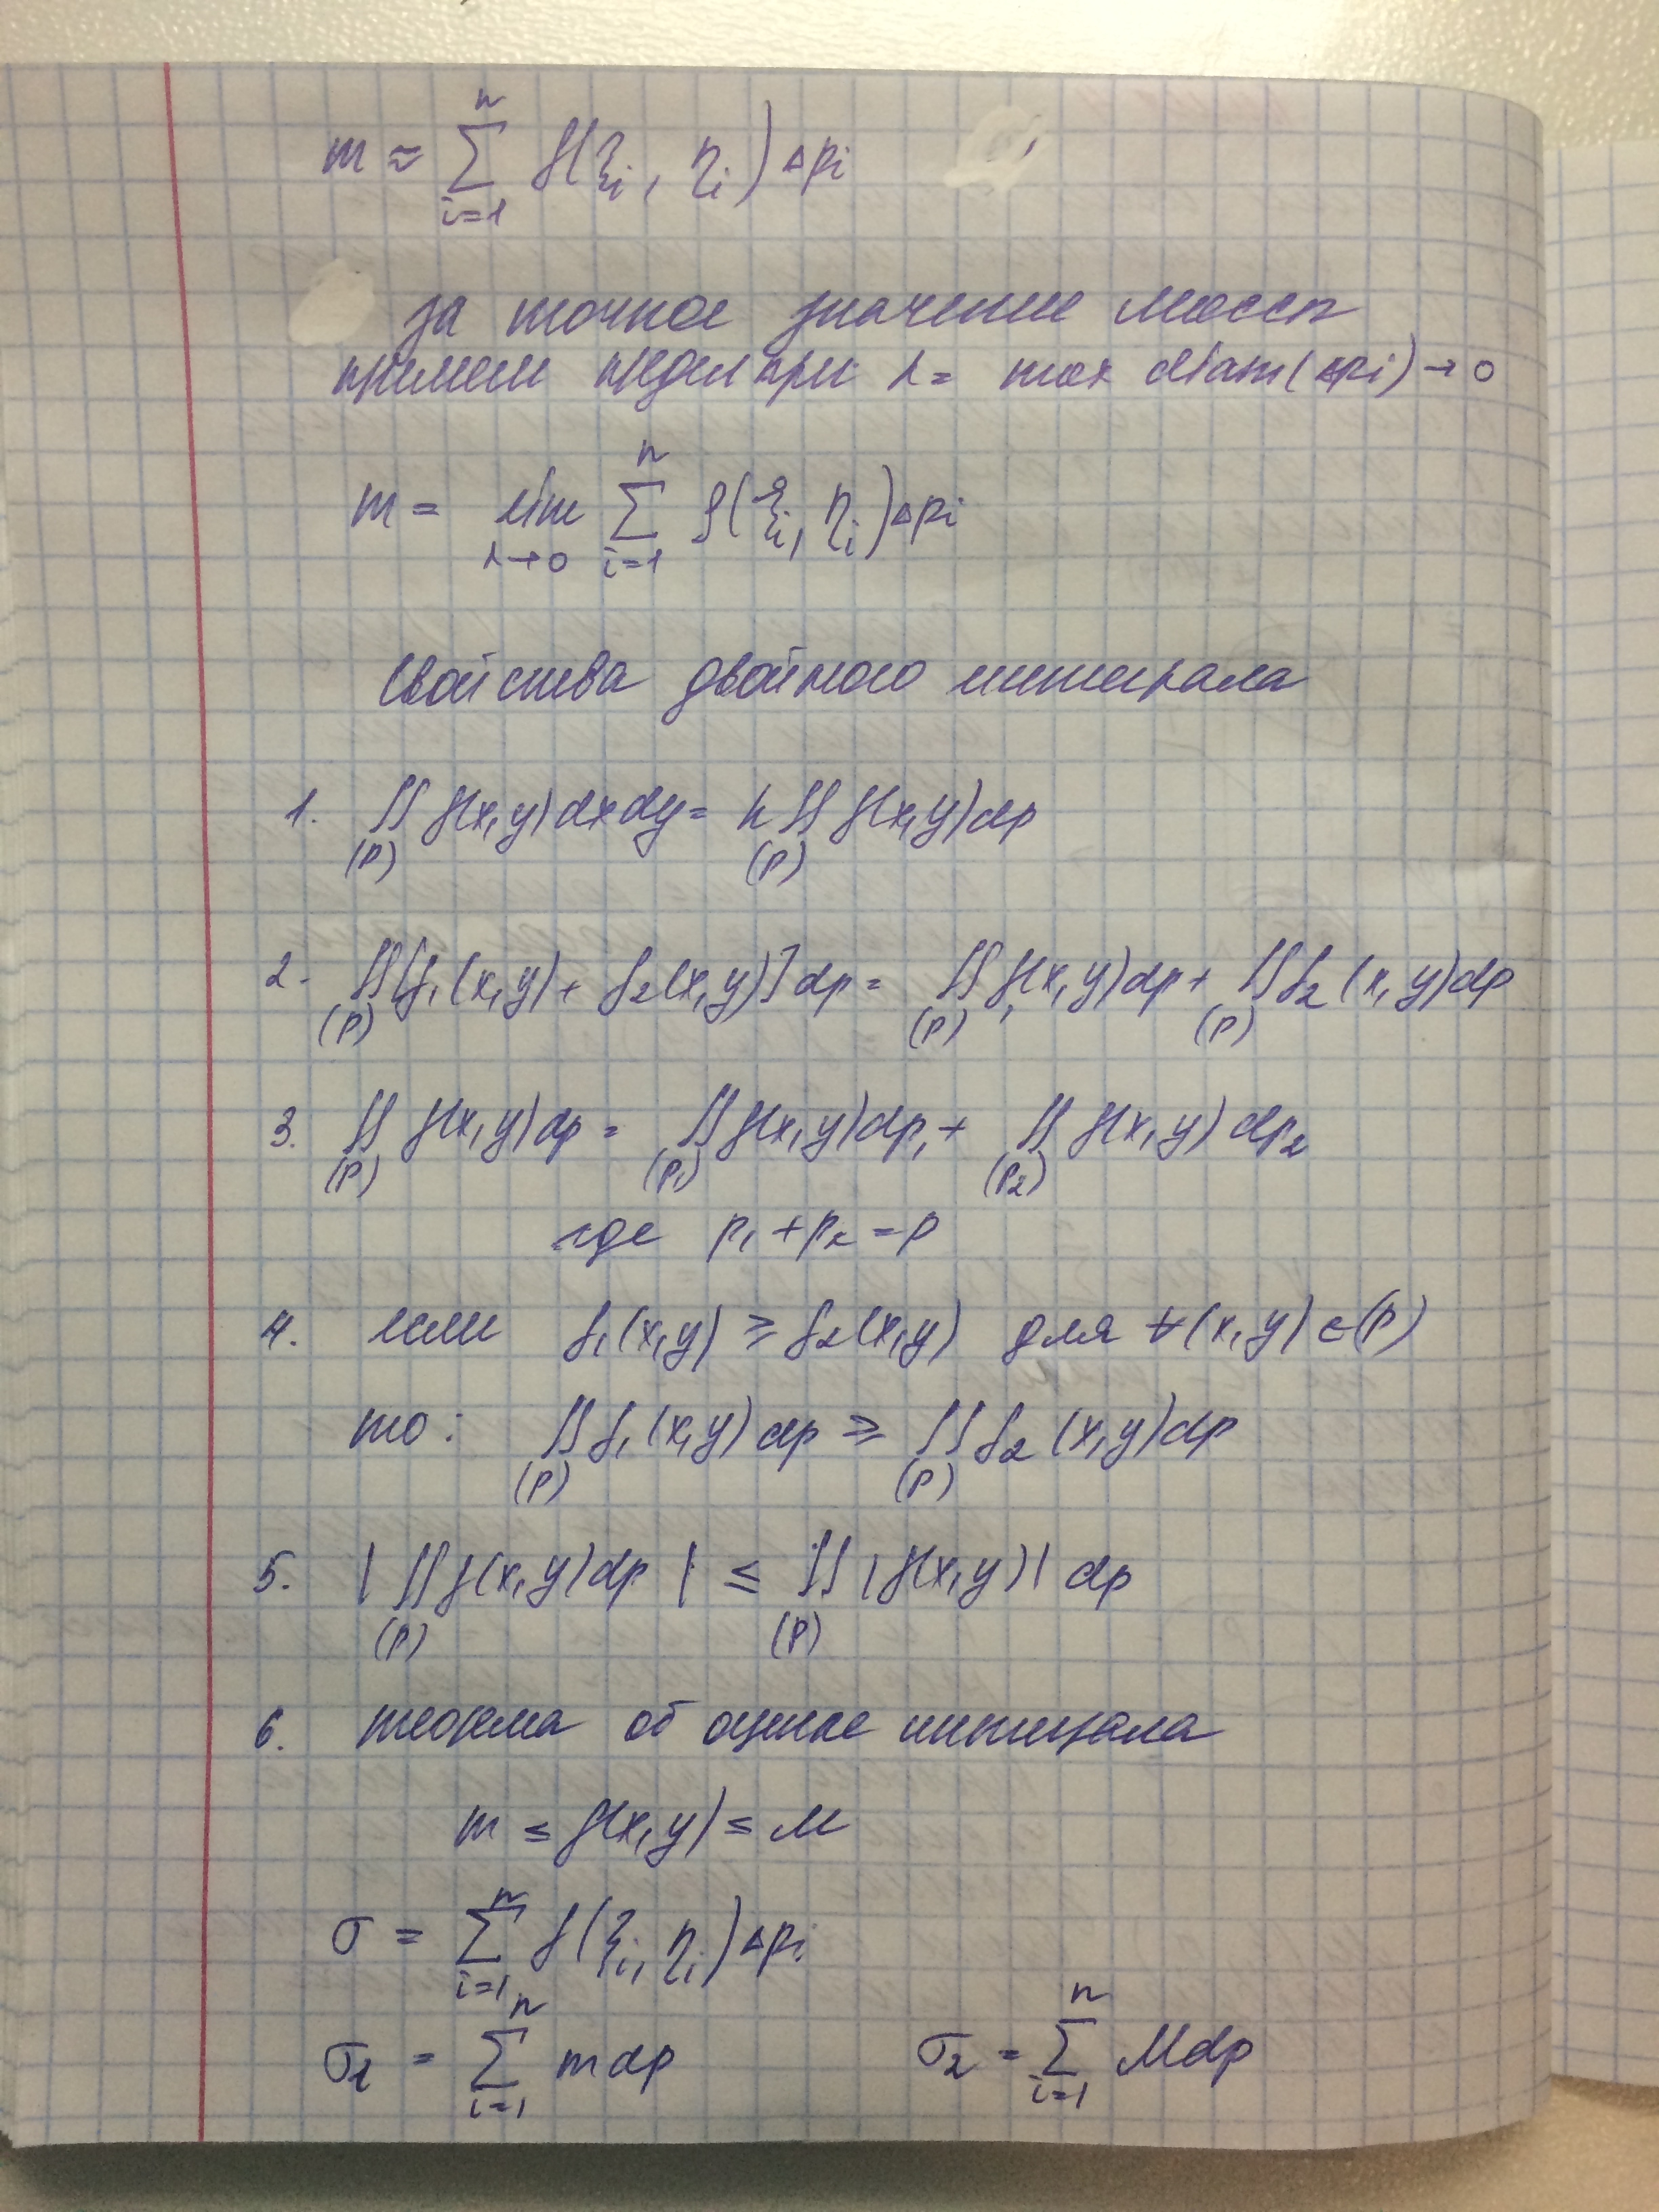 m ≈ ∑_{i=1}^{n} f(ξ_i, η_i) Δp_i
за точное значение массы
примем предел при λ = max diam(Δp_i) → 0
m = lim_{λ→0} ∑_{i=1}^{n} ρ(ξ_i, η_i) Δp_i
Свойства двойного интеграла
1. ∬_{(P)} f(x,y) dx dy = k ∬_{(P)} f(x,y) dp
2. ∬_{(P)} [f₁(x,y) + f₂(x,y)] dp = ∬_{(P)} f₁(x,y) dp + ∬_{(P)} f₂(x,y) dp
3. ∬_{(P)} f(x,y) dp = ∬_{(P₁)} f(x,y) dp₁ + ∬_{(P₂)} f(x,y) dp₂
где p₁ + p₂ = p
4. если f₁(x,y) ≥ f₂(x,y) для ∀(x,y) ∈ (P)
то: ∬_{(P)} f₁(x,y) dp ≥ ∬_{(P)} f₂(x,y) dp
5. | ∬_{(P)} f(x,y) dp | ≤ ∬_{(P)} |f(x,y)| dp
6. теорема об оценке интеграла
m ≤ f(x,y) ≤ M
σ = ∑_{i=1}^{n} f(ξ_i, η_i) Δp_i
σ₁ = ∑_{i=1}^{n} m dp σ₂ = ∑_{i=1}^{n} M dp